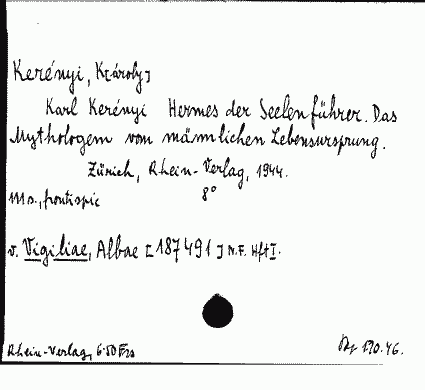 Kerényi, K[ároly]
Karl Kerényi Hermes der Seelenführer. Das
Mythologem vom männlichen Lebensursprung.
Zürich, Rhein-Verlag, 1944.
8°
v. Vigiliae, Albae [187491] N.F. Hft I.
Rhein-Verlag, 6.50 Frs